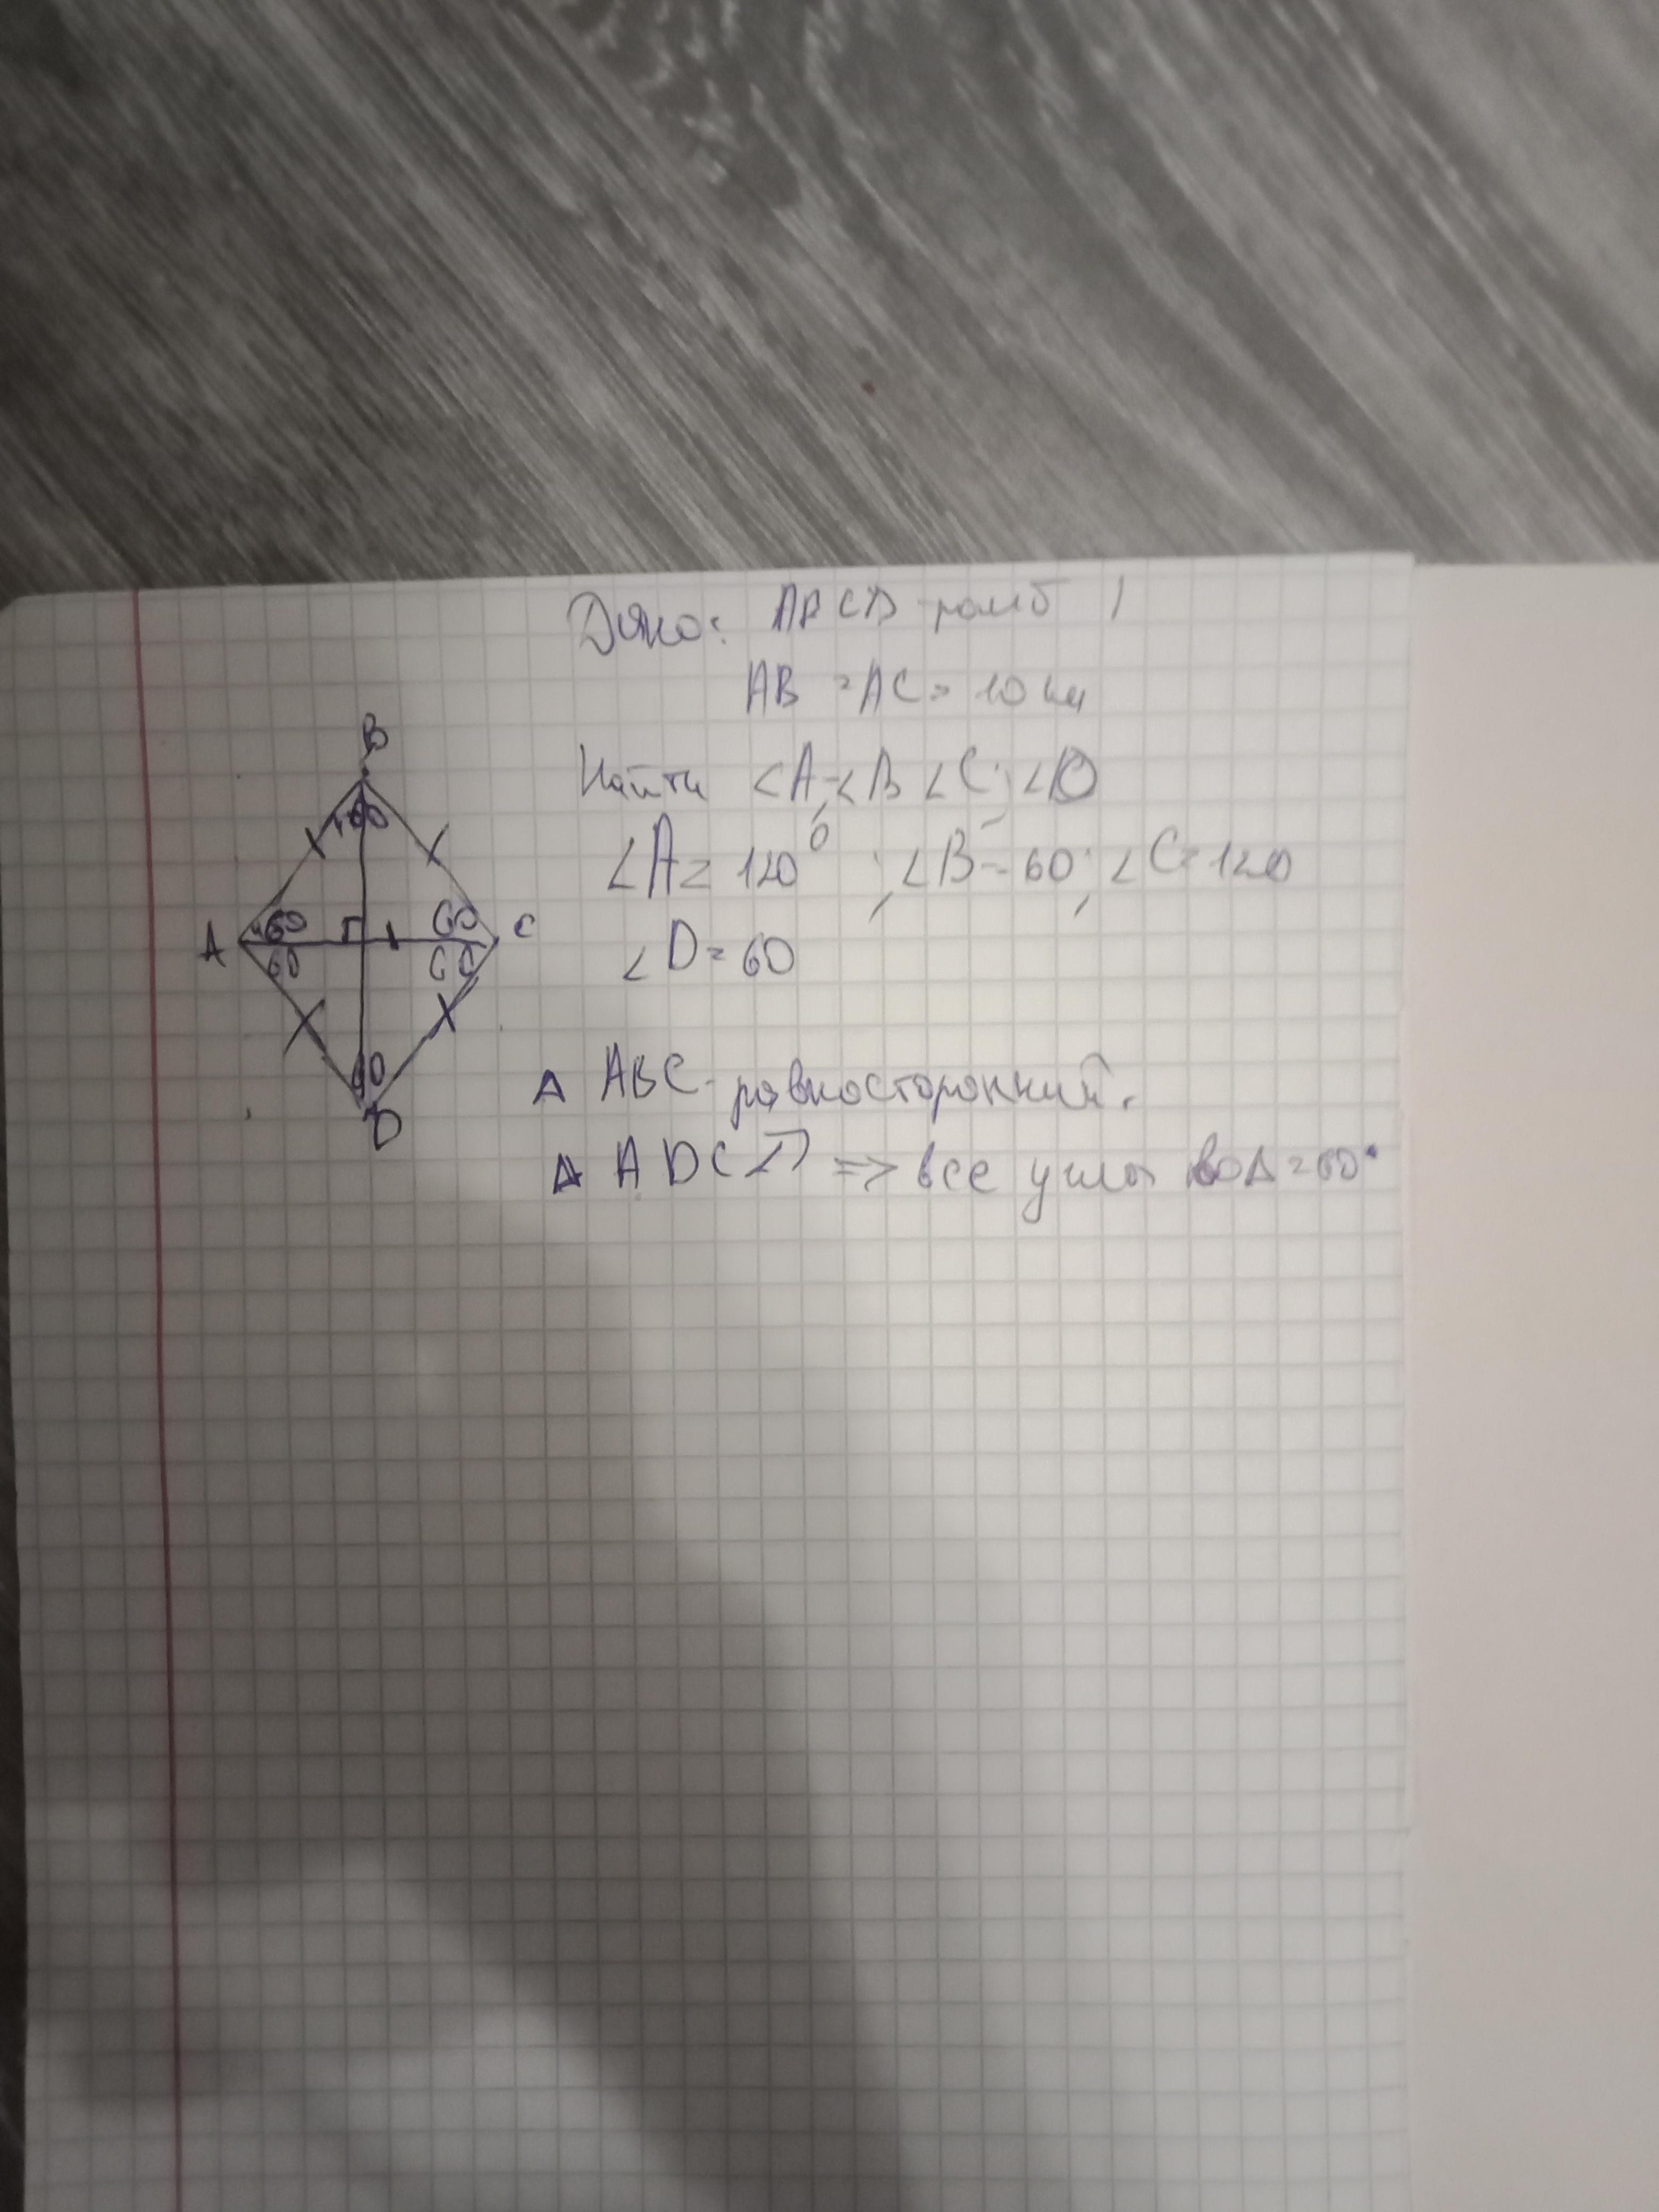 Дано: ABCD - ромб
AB = AC = 10 см
Найти <A, <B <C; <D
<A = 120° ; <B = 60; <C = 120
<D = 60
Δ ABC - равносторонний.
Δ ADC => все углы = 60°
B
60
A 60 60 C
60 60
60
D